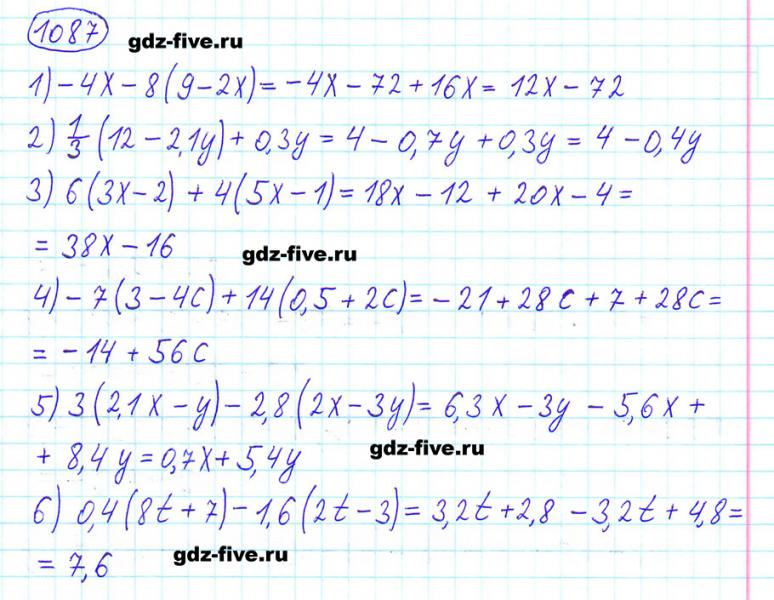 1087
gdz-five.ru
1) -4x - 8(9 - 2x) = -4x - 72 + 16x = 12x - 72
2) 1/3 (12 - 2,1y) + 0,3y = 4 - 0,7y + 0,3y = 4 - 0,4y
3) 6(3x - 2) + 4(5x - 1) = 18x - 12 + 20x - 4 =
= 38x - 16
gdz-five.ru
4) -7(3 - 4c) + 14(0,5 + 2c) = -21 + 28c + 7 + 28c =
= -14 + 56c
5) 3(2,1x - y) - 2,8(2x - 3y) = 6,3x - 3y - 5,6x +
+ 8,4y = 0,7x + 5,4y
gdz-five.ru
6) 0,4(8t + 7) - 1,6(2t - 3) = 3,2t + 2,8 - 3,2t + 4,8 =
= 7,6
gdz-five.ru